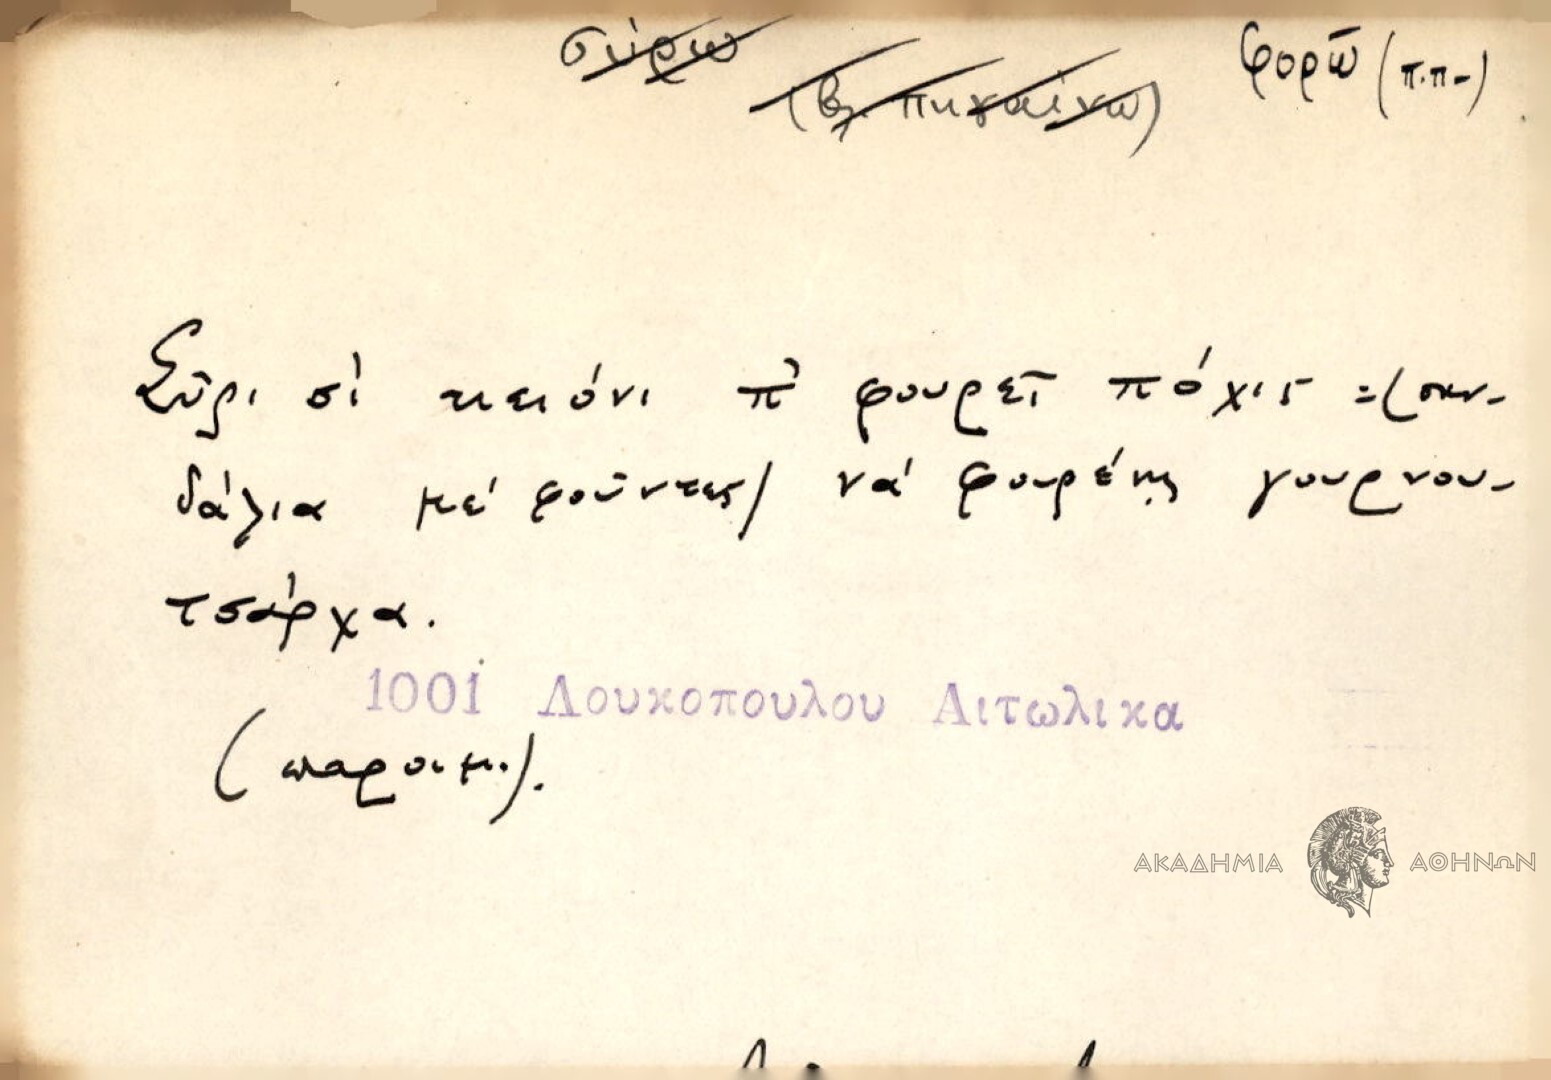 σύρω
(βλ. πηγαίνω)
φορῶ (π.π.)
Σῦρι σὶ κειόνι π' φουρεῖ πόχις =(σκν-
δάλια μέ φοῦντες) νά φουρένῃς γουρνου-
τσάρχα.
1001 Λουκοπουλου Αιτωλικα
(παροιμ.).
ΑΚΑΔΗΜΙΑ ΑΘΗΝΩΝ